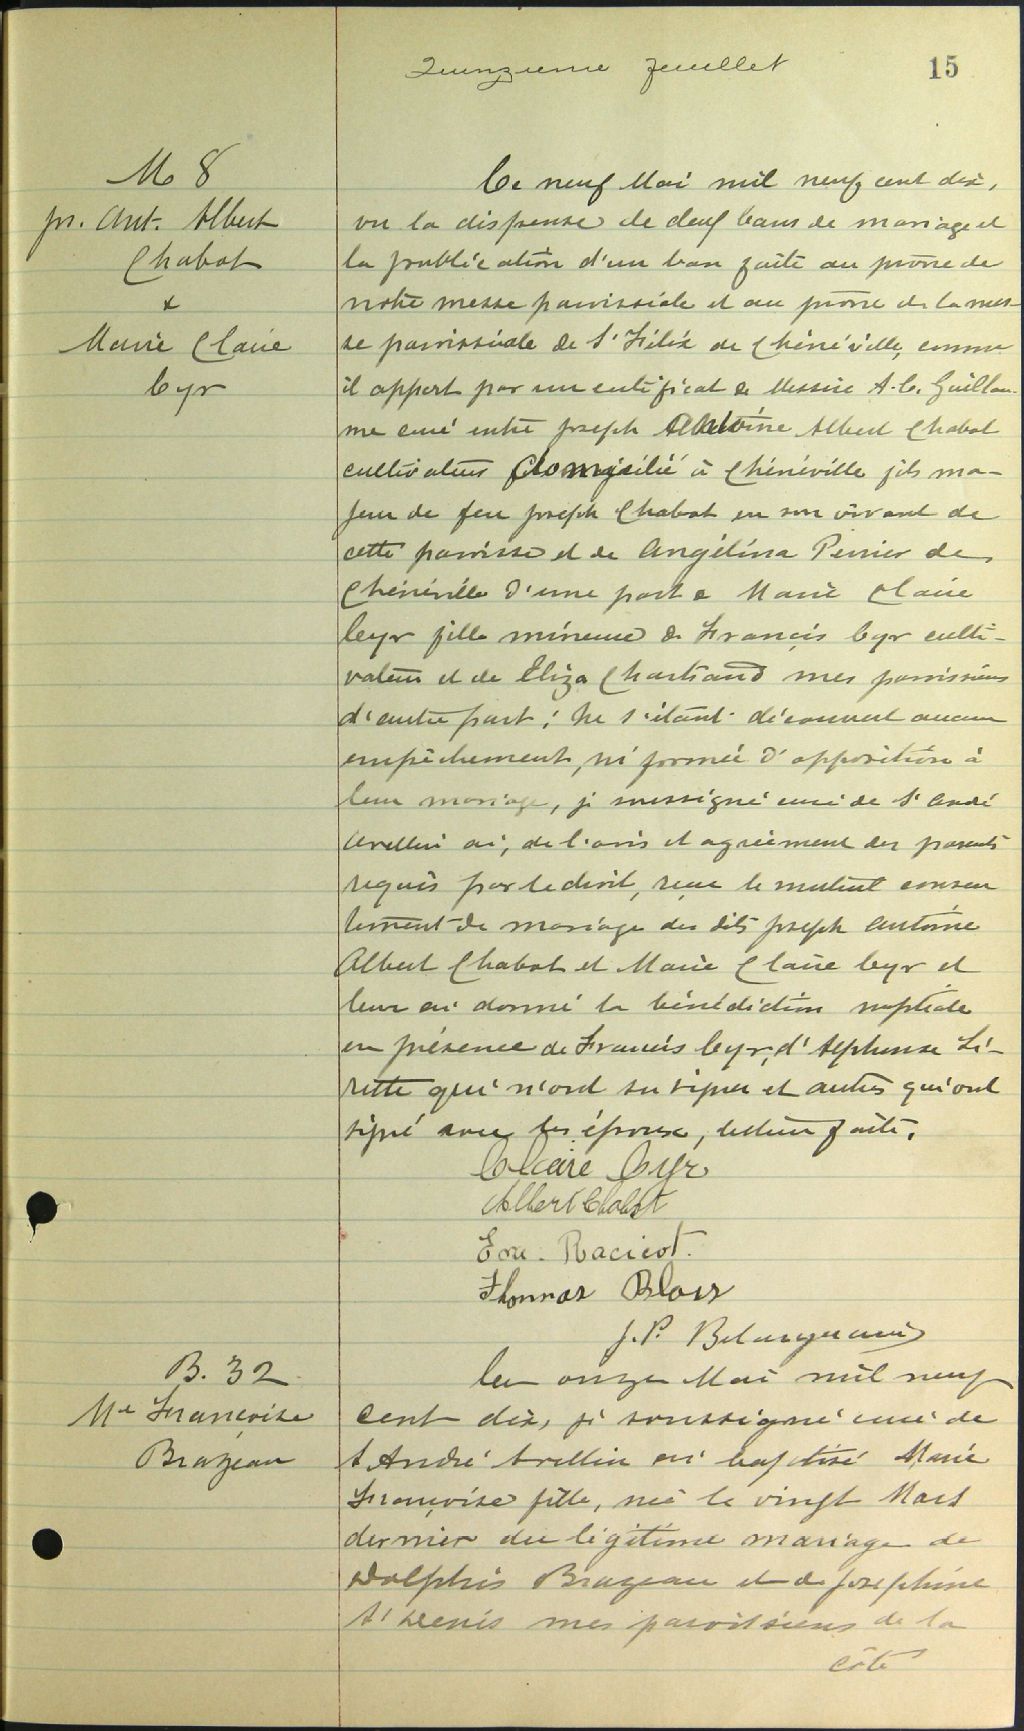 Quinzieme feuillet
15
M 8
jos. Ant. Albert
Chabot
&
Marie Claire
Cyr
Ce neuf Mai mil neuf cent dix,
vu la dispense de deux bans de mariage et
la publication d'un ban faite au prône de
notre messe paroissiale et au prône de la mes-
se paroissiale de St Félix de Chénéville, comme
il appert par un certificat de Messire A. C. Guillau-
me curé entre Joseph Antoine Albert Chabot
cultivateur domicilié à Chénéville fils ma-
jeur de feu Joseph Chabot en son vivant de
cette paroisse et de Angélina Perrier de
Chénéville d'une part & Marie Claire
Cyr fille mineure de Francis Cyr culti-
vateur et de Eliza Chartrand mes paroissiens
d'autre part; Ne s'étant découvert aucun
empêchement, ni formée d'opposition à
leur mariage, je soussigné curé de St André
Avellin ai, de l'avis et agrèement des parents
requis par le droit, reçu le mutuel consen
tement de mariage des dits Joseph Antoine
Albert Chabot et Marie Claire Cyr et
leur ai donné la bénédiction nuptiale
en présence de Francis Cyr, d'Alphonse Li-
rette qui n'ont su signer et autres qui ont
signé avec les époux, lecture faite.
Claire Cyr
Albert Chabot
Eva. Racicot.
Thomas Blais
J. P. Belanger
B. 32
Me Françoise
Brazeau
Ce onze Mai mil neuf
cent dix, je soussigné curé de
St André Avellin ai baptisé Marie
Françoise fille, née le vingt Mars
dernier du légitime mariage de
Adolphis Brazeau et de Joséphine
St Denis mes paroissiens de la
côte